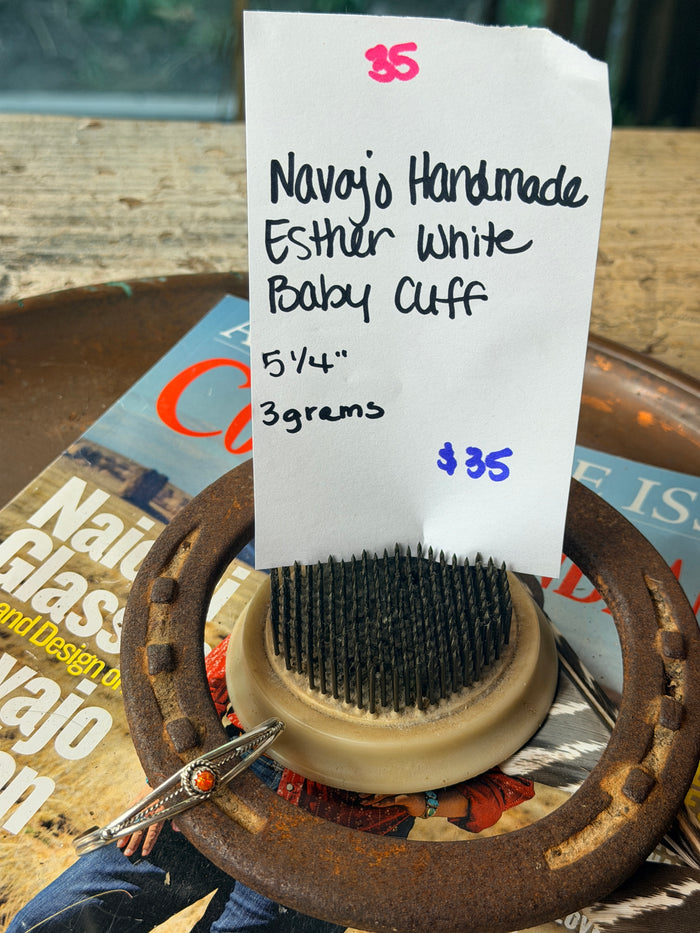 35
Navajo Handmade
Esther White
Baby Cuff
5 1/4"
3grams
$35
Naio
Glass
and Design of